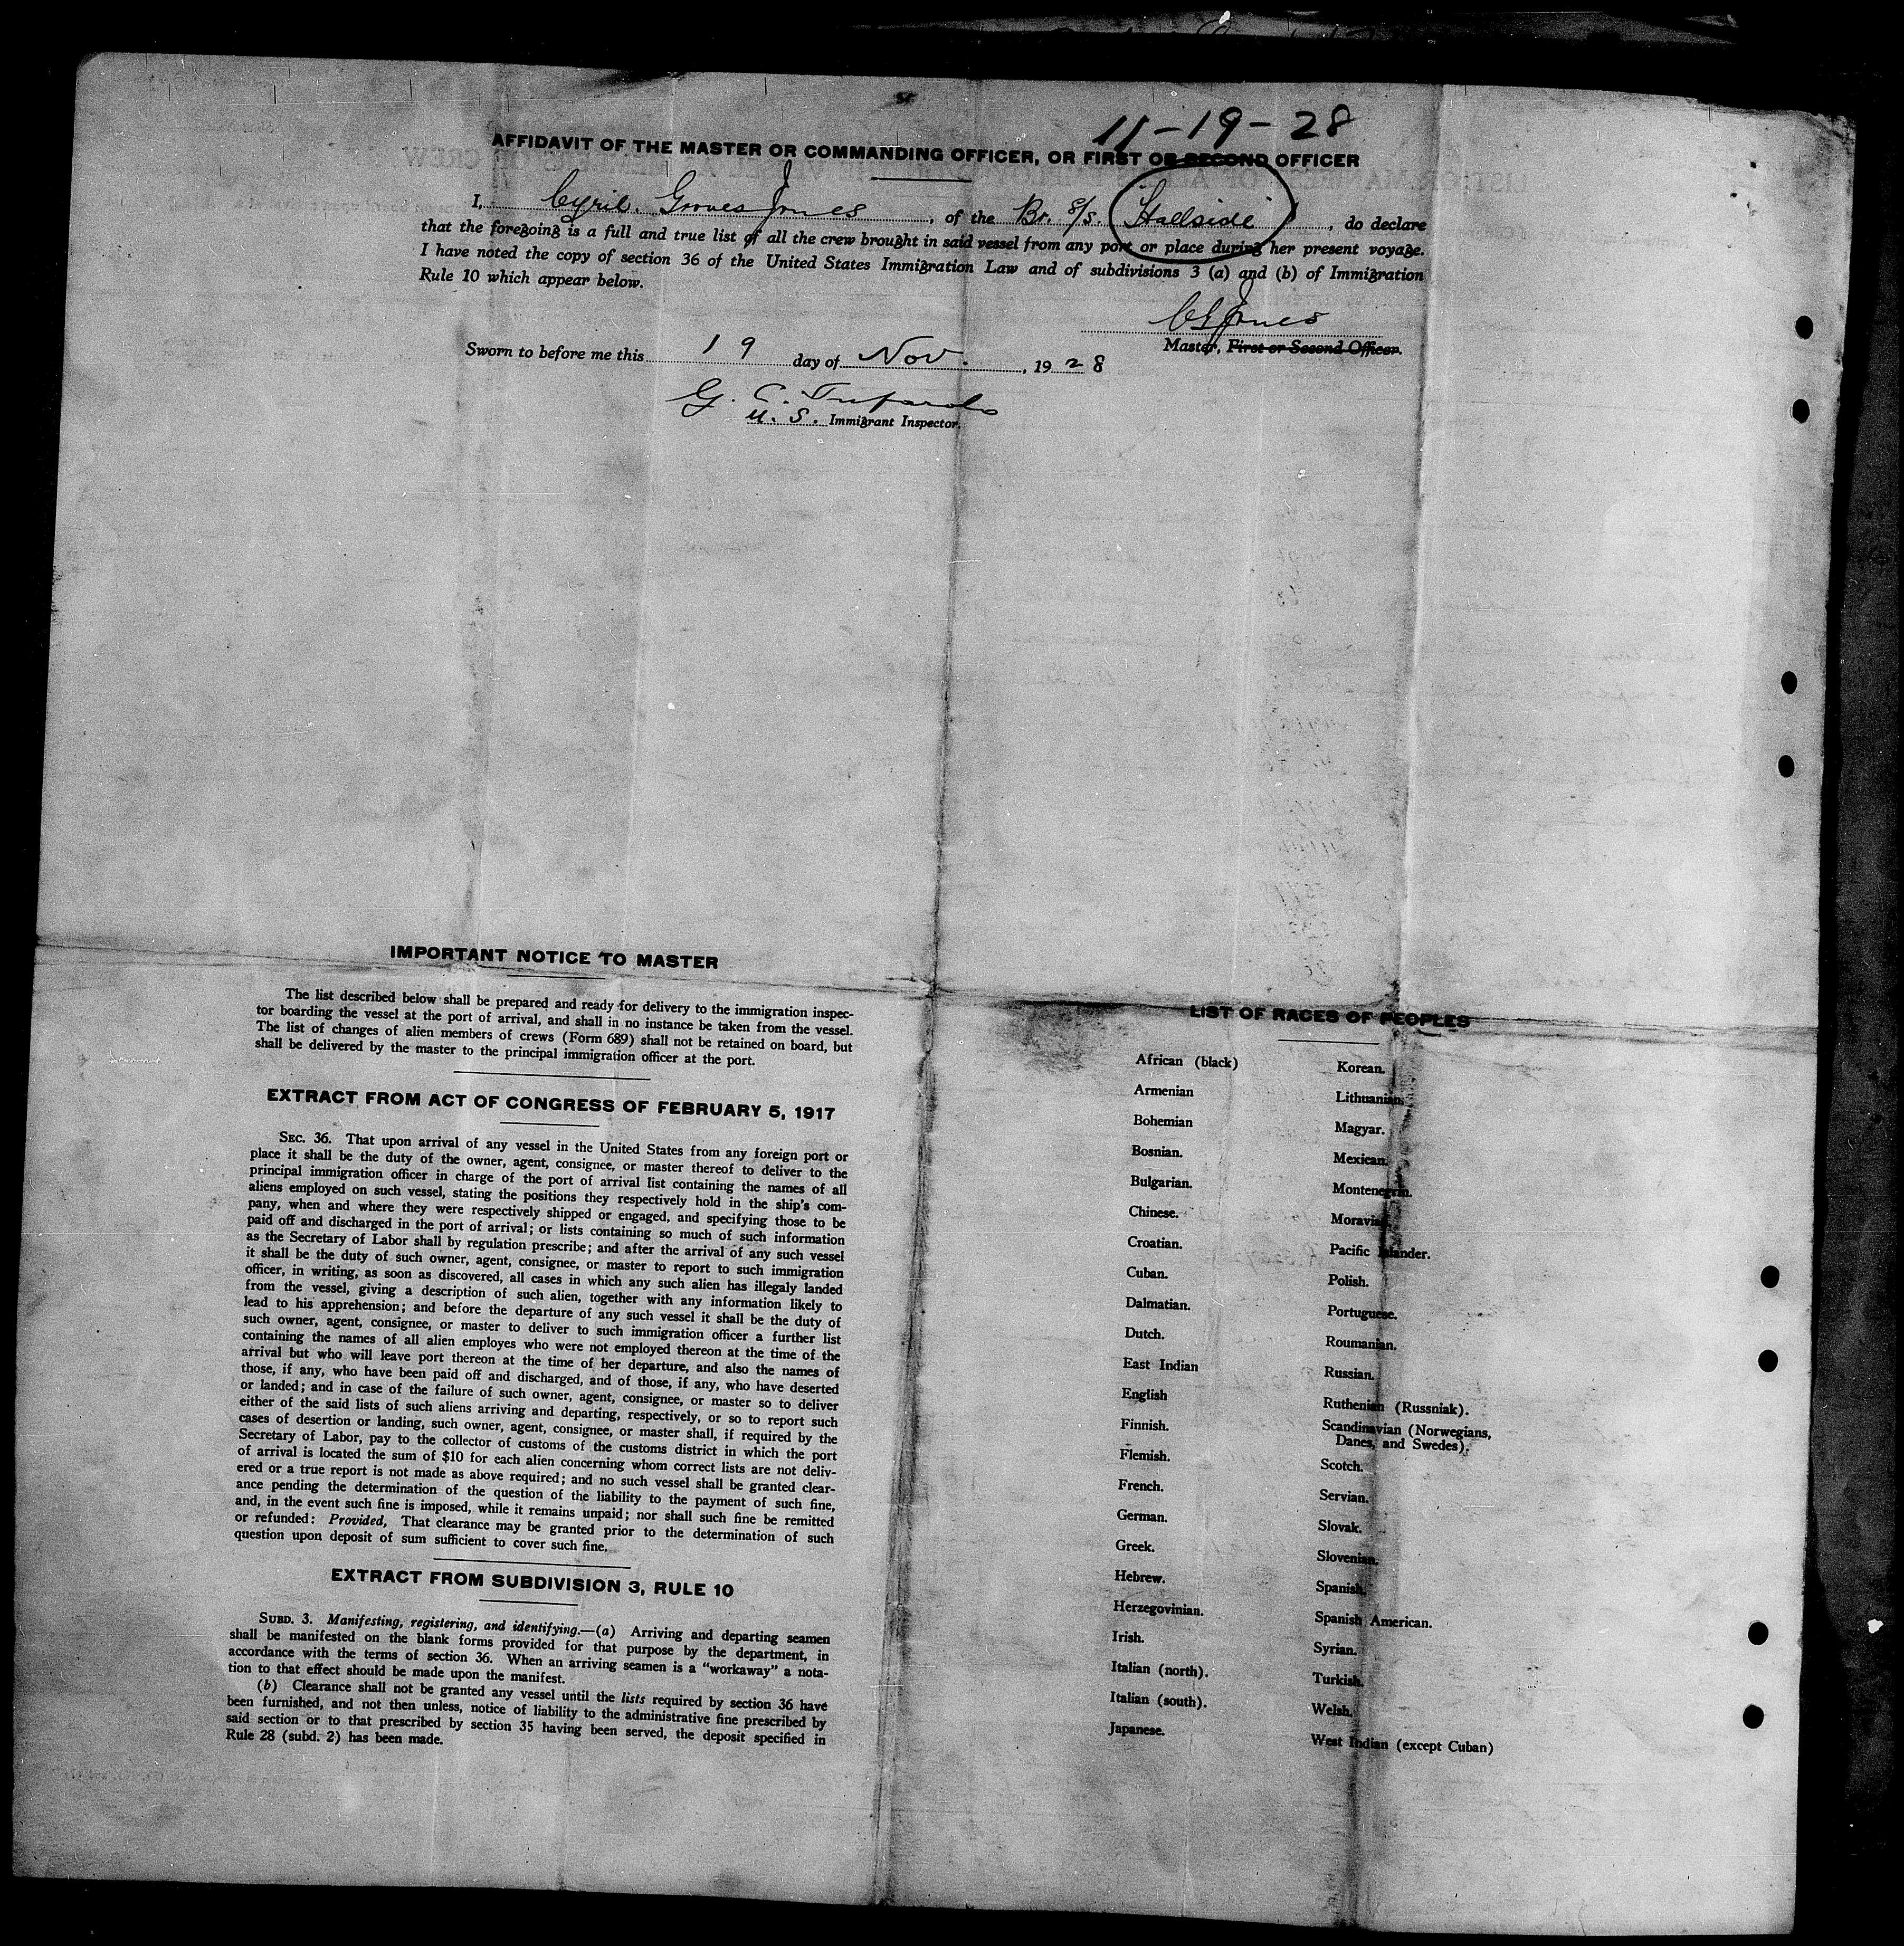 11-19-28
AFFIDAVIT OF THE MASTER OR COMMANDING OFFICER, OR FIRST OR SECOND OFFICER
I, Cyril Groves Jones, of the Br. S/S. "Hallside", do declare
that the foregoing is a full and true list of all the crew brought in said vessel from any port or place during her present voyage.
I have noted the copy of section 36 of the United States Immigration Law and of subdivisions 3 (a) and (b) of Immigration
Rule 10 which appear below.
CGJones
Master, First or Second Officer.
Sworn to before me this 19 day of Nov., 1928
G. C.
U. S. Immigrant Inspector.
IMPORTANT NOTICE TO MASTER
The list described below shall be prepared and ready for delivery to the immigration inspec-
tor boarding the vessel at the port of arrival, and shall in no instance be taken from the vessel.
The list of changes of alien members of crews (Form 689) shall not be retained on board, but
shall be delivered by the master to the principal immigration officer at the port.
EXTRACT FROM ACT OF CONGRESS OF FEBRUARY 5, 1917
SEC. 36. That upon arrival of any vessel in the United States from any foreign port or
place it shall be the duty of the owner, agent, consignee, or master thereof to deliver to the
principal immigration officer in charge of the port of arrival list containing the names of all
aliens employed on such vessel, stating the positions they respectively hold in the ship's com-
pany, when and where they were respectively shipped or engaged, and specifying those to be
paid off and discharged in the port of arrival; or lists containing so much of such information
as the Secretary of Labor shall by regulation prescribe; and after the arrival of any such vessel
it shall be the duty of such owner, agent, consignee, or master to report to such immigration
officer, in writing, as soon as discovered, all cases in which any such alien has illegally landed
from the vessel, giving a description of such alien, together with any information likely to
lead to his apprehension; and before the departure of any such vessel it shall be the duty of
such owner, agent, consignee, or master to deliver to such immigration officer a further list
containing the names of all alien employes who were not employed thereon at the time of the
arrival but who will leave port thereon at the time of her departure, and also the names of
those, if any, who have been paid off and discharged, and of those, if any, who have deserted
or landed; and in case of the failure of such owner, agent, consignee, or master so to deliver
either of the said lists of such aliens arriving and departing, respectively, or so to report such
cases of desertion or landing, such owner, agent, consignee, or master shall, if required by the
Secretary of Labor, pay to the collector of customs of the customs district in which the port
of arrival is located the sum of $10 for each alien concerning whom correct lists are not deliv-
ered or a true report is not made as above required; and no such vessel shall be granted clear-
ance pending the determination of the question of the liability to the payment of such fine,
and, in the event such fine is imposed, while it remains unpaid; nor shall such fine be remitted
or refunded: Provided, That clearance may be granted prior to the determination of such
question upon deposit of sum sufficient to cover such fine.
EXTRACT FROM SUBDIVISION 3, RULE 10
SUBD. 3. Manifesting, registering, and identifying.—(a) Arriving and departing seamen
shall be manifested on the blank forms provided for that purpose by the department, in
accordance with the terms of section 36. When an arriving seamen is a "workaway" a nota-
tion to that effect should be made upon the manifest.
(b) Clearance shall not be granted any vessel until the lists required by section 36 have
been furnished, and not then unless, notice of liability to the administrative fine prescribed by
said section or to that prescribed by section 35 having been served, the deposit specified in
Rule 28 (subd. 2) has been made.
LIST OF RACES OF PEOPLES
African (black)
Armenian
Bohemian
Bosnian.
Bulgarian.
Chinese.
Croatian.
Cuban.
Dalmatian.
Dutch.
East Indian
English
Finnish.
Flemish.
French.
German.
Greek.
Hebrew.
Herzegovinian.
Irish.
Italian (north).
Italian (south).
Japanese.
Korean.
Lithuanian.
Magyar.
Mexican.
Montenegrin.
Moravian.
Pacific Islander.
Polish.
Portuguese.
Roumanian.
Russian.
Ruthenian (Russniak).
Scandinavian (Norwegians,
Danes, and Swedes).
Scotch.
Servian.
Slovak.
Slovenian.
Spanish.
Spanish American.
Syrian.
Turkish.
Welsh.
West Indian (except Cuban)